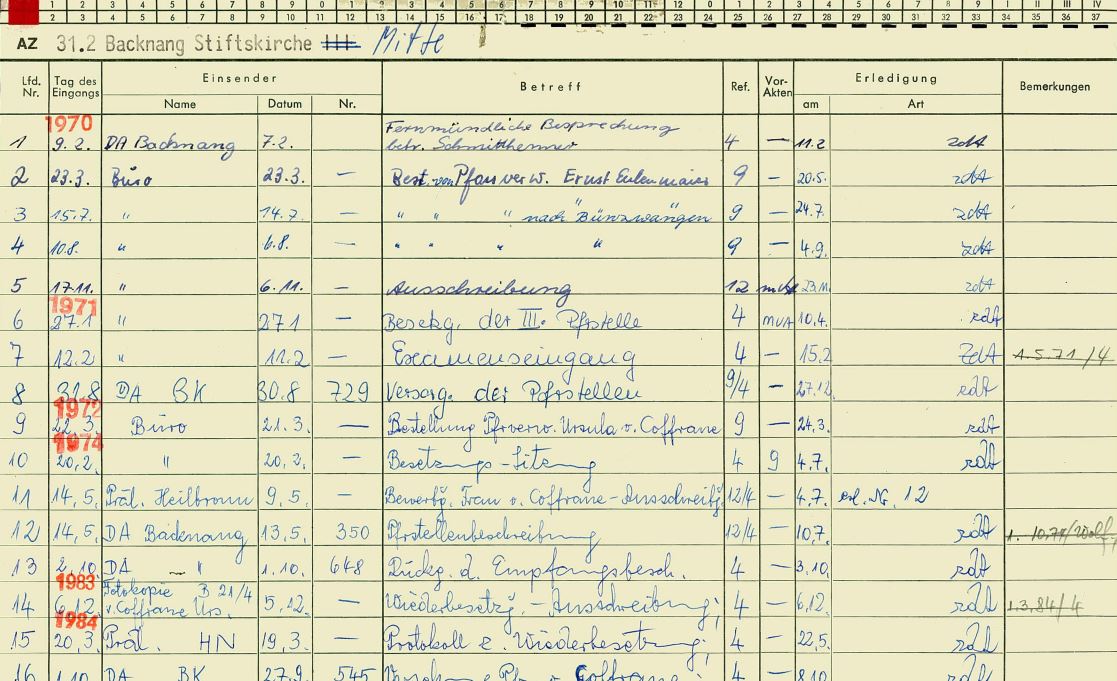 AZ 31.2 Backnang Stiftskirche III Mitte
Lfd. Nr. Tag des Eingangs Einsender Betreff Ref. Vor- Akten Erledigung Bemerkungen
Name Datum Nr. am Art
1970
1 9.2. DA Backnang 7.2. Fernmündliche Besprechung betr. Schmitthenner 4 — 11.2 zdA
2 23.3. Büro 23.3. — Best. von Pfarrverw. Ernst Eulenmaier 9 — 20.5. zdA
3 15.7. " 14.7. — " " " nach Bünzwangen 9 — 24.7. zdA
4 10.8. " 6.8. — " " " " 9 — 4.9. zdA
5 17.11. " 6.11. — Ausschreibung 12 mVA 23.11. zdA
1971
6 27.1 " 27.1 — Besetzg. der III. Pfrstelle 4 mVA 10.4. zdA
7 12.2 " 11.2 — Examenseingang 4 — 15.2 ZdA 1.5.71/4
8 31.8 DA BK 30.8 729 Versorg. der Pfrstellen 9/4 — 27.12. zdA
1972
9 22.3. Büro 21.3. — Bestellung Pfrverw. Ursula v. Coffrane 9 — 24.3. zdA
1974
10 20.2. " 20.2. — Besetzungs-Sitzung 4 9 4.7. zdA
11 14.5. Präl. Heilbronn 9.5. — Bewerbg. Frau v. Coffrane-Ausschreibg. 12/4 — 4.7. erl. Nr. 12
12 14.5. DA Backnang 13.5. 350 Pfrstellenbeschreibung 12/4 — 10.7. zdA 1.10.74/Wolf
13 2.10. DA " 1.10. 648 Rückg. d. Empfangsbesch. 4 — 3.10. zdA
1983
14 6.12. Fotokopie B 21/4 v. Coffrane Urs. 5.12. — Wiederbesetzg. - Ausschreibung; 4 — 6.12. zdA 1.3.84/4
1984
15 20.3. Präl. HN 19.3. — Protokoll z. Wiederbesetzung; 4 — 22.5. zdA
16 1.10. DA BK 27.9. 545 v. Coffrane; 4 — 8.10. zdA